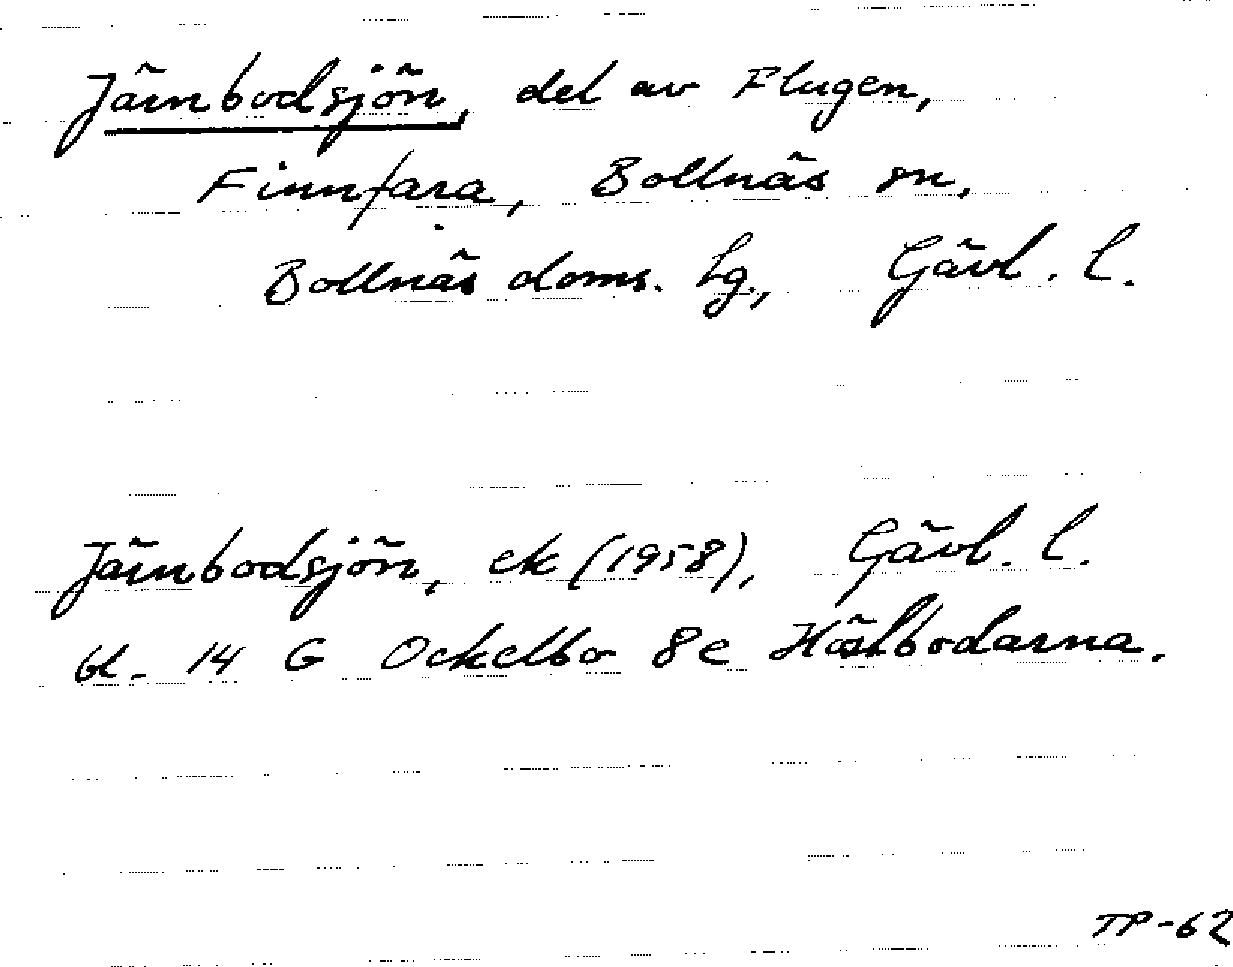 Järnbodsjön, del av Flugen,
Finnfara, Bollnäs sn,
Bollnäs doms. lg., Gävl. l.
Järnbodsjön, ek (1958), Gävl. l.
bl. 14 G Ockelbo 8e Häslbodarna.
TP-62